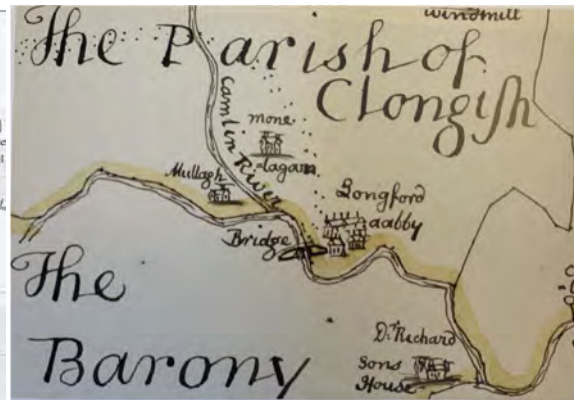 windmill
The Parish of
Clongish
Camlin River
mone
=lagan
Mullagh
Longford
aabby
Bridge
The
Dr Richard
Sons
House
Barony